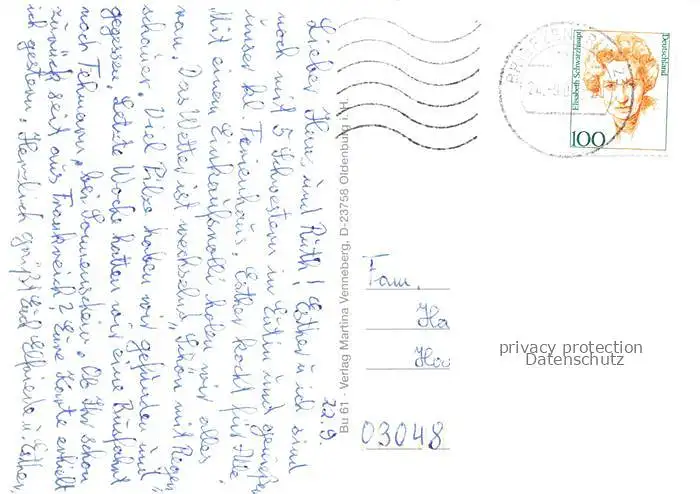 22.9.
Lieber Heinz und Ruth! Esther u. ich sind
noch mit 5 Schwestern in Eutin und genießen
unser kl. Ferienhaus. Esther kocht für Alle.
Mit einem Einkaufsrolli holen wir alles
ran. Das Wetter ist wechselnd, schön mit Regen
schauer. Viel Pilze haben wir gefunden und
gegessen. Letzte Woche hatten wir eine Busfahrt
nach Fehmarn, bei Sonnenschein. Ob Ihr schon
zurück seit aus Frankreich? Eure Karte erhielt
ich gestern. Herzlich grüßt Euch Elfriede u. Esther
Bu 61 - Verlag Martina Venneberg, D-23758 Oldenburg i. H.
Deutschland
Elisabeth Schwarzhaupt
100
Fam.
Ha
03048
privacy protection
Datenschutz